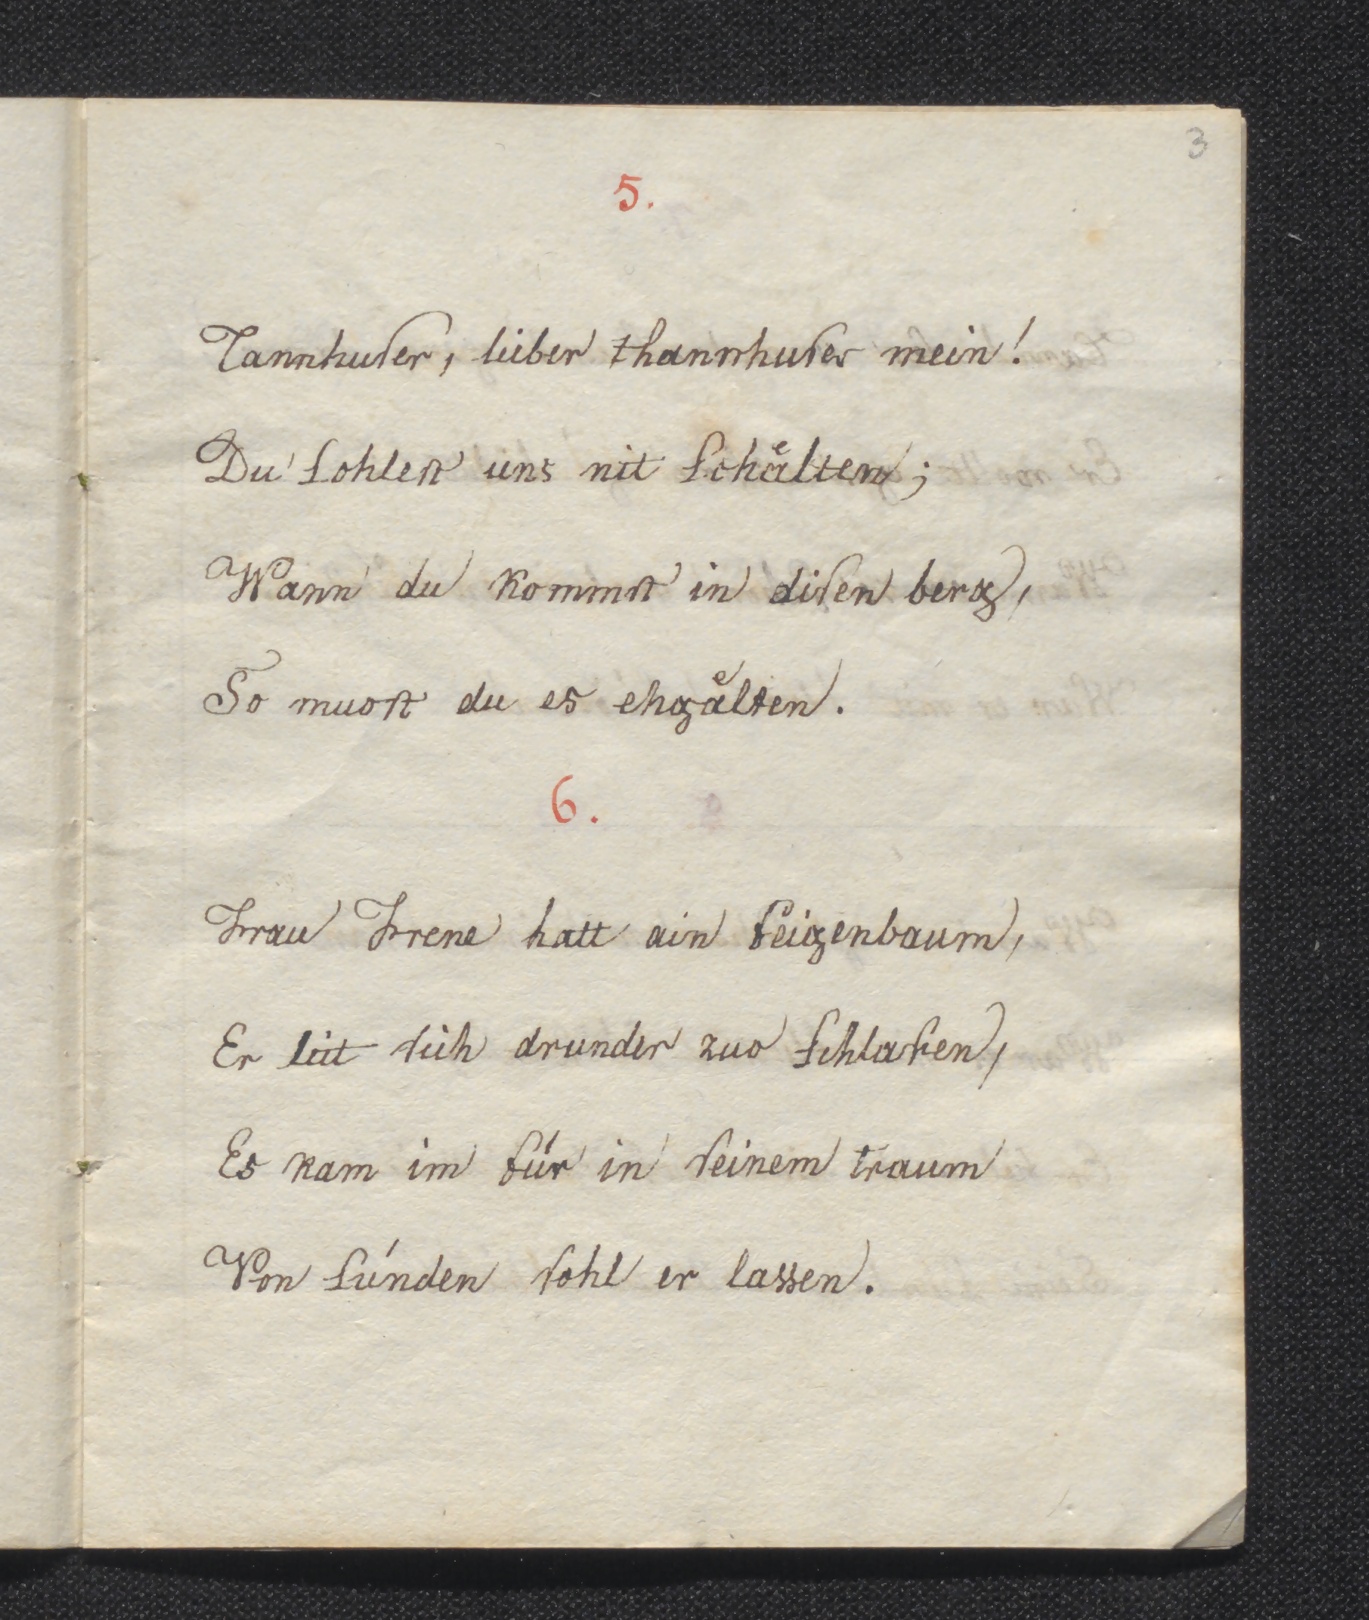 3
5.
Tannhuser, lieber thannhuser mein!
Du sohlest uns nit schålten;
Wann du kommst in disen berg,
So muost du es ehgålten.
6.
Frau Frene hatt ain feigenbaum,
Er leit sich drunder zuo schlafen,
Es kam im für in seinem traum
Von sünden sohl er lassen.